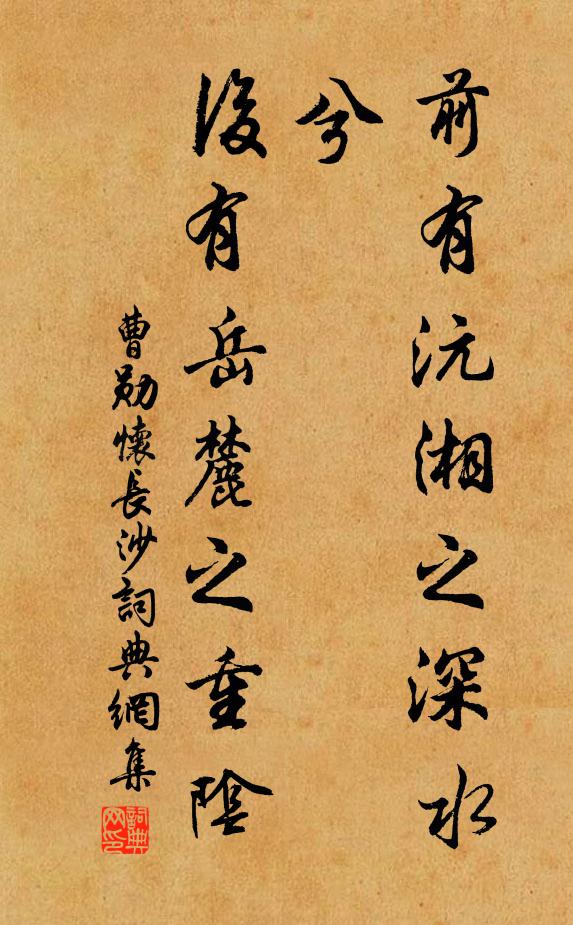 前有沅湘之深水
兮
後有岳麓之重陰
曹勛懷長沙詞典網集
詞典
网印